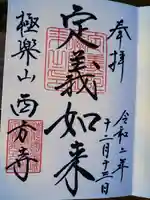 奉拝
令和二年
十二月十三日
定義如来
極楽山 西方寺